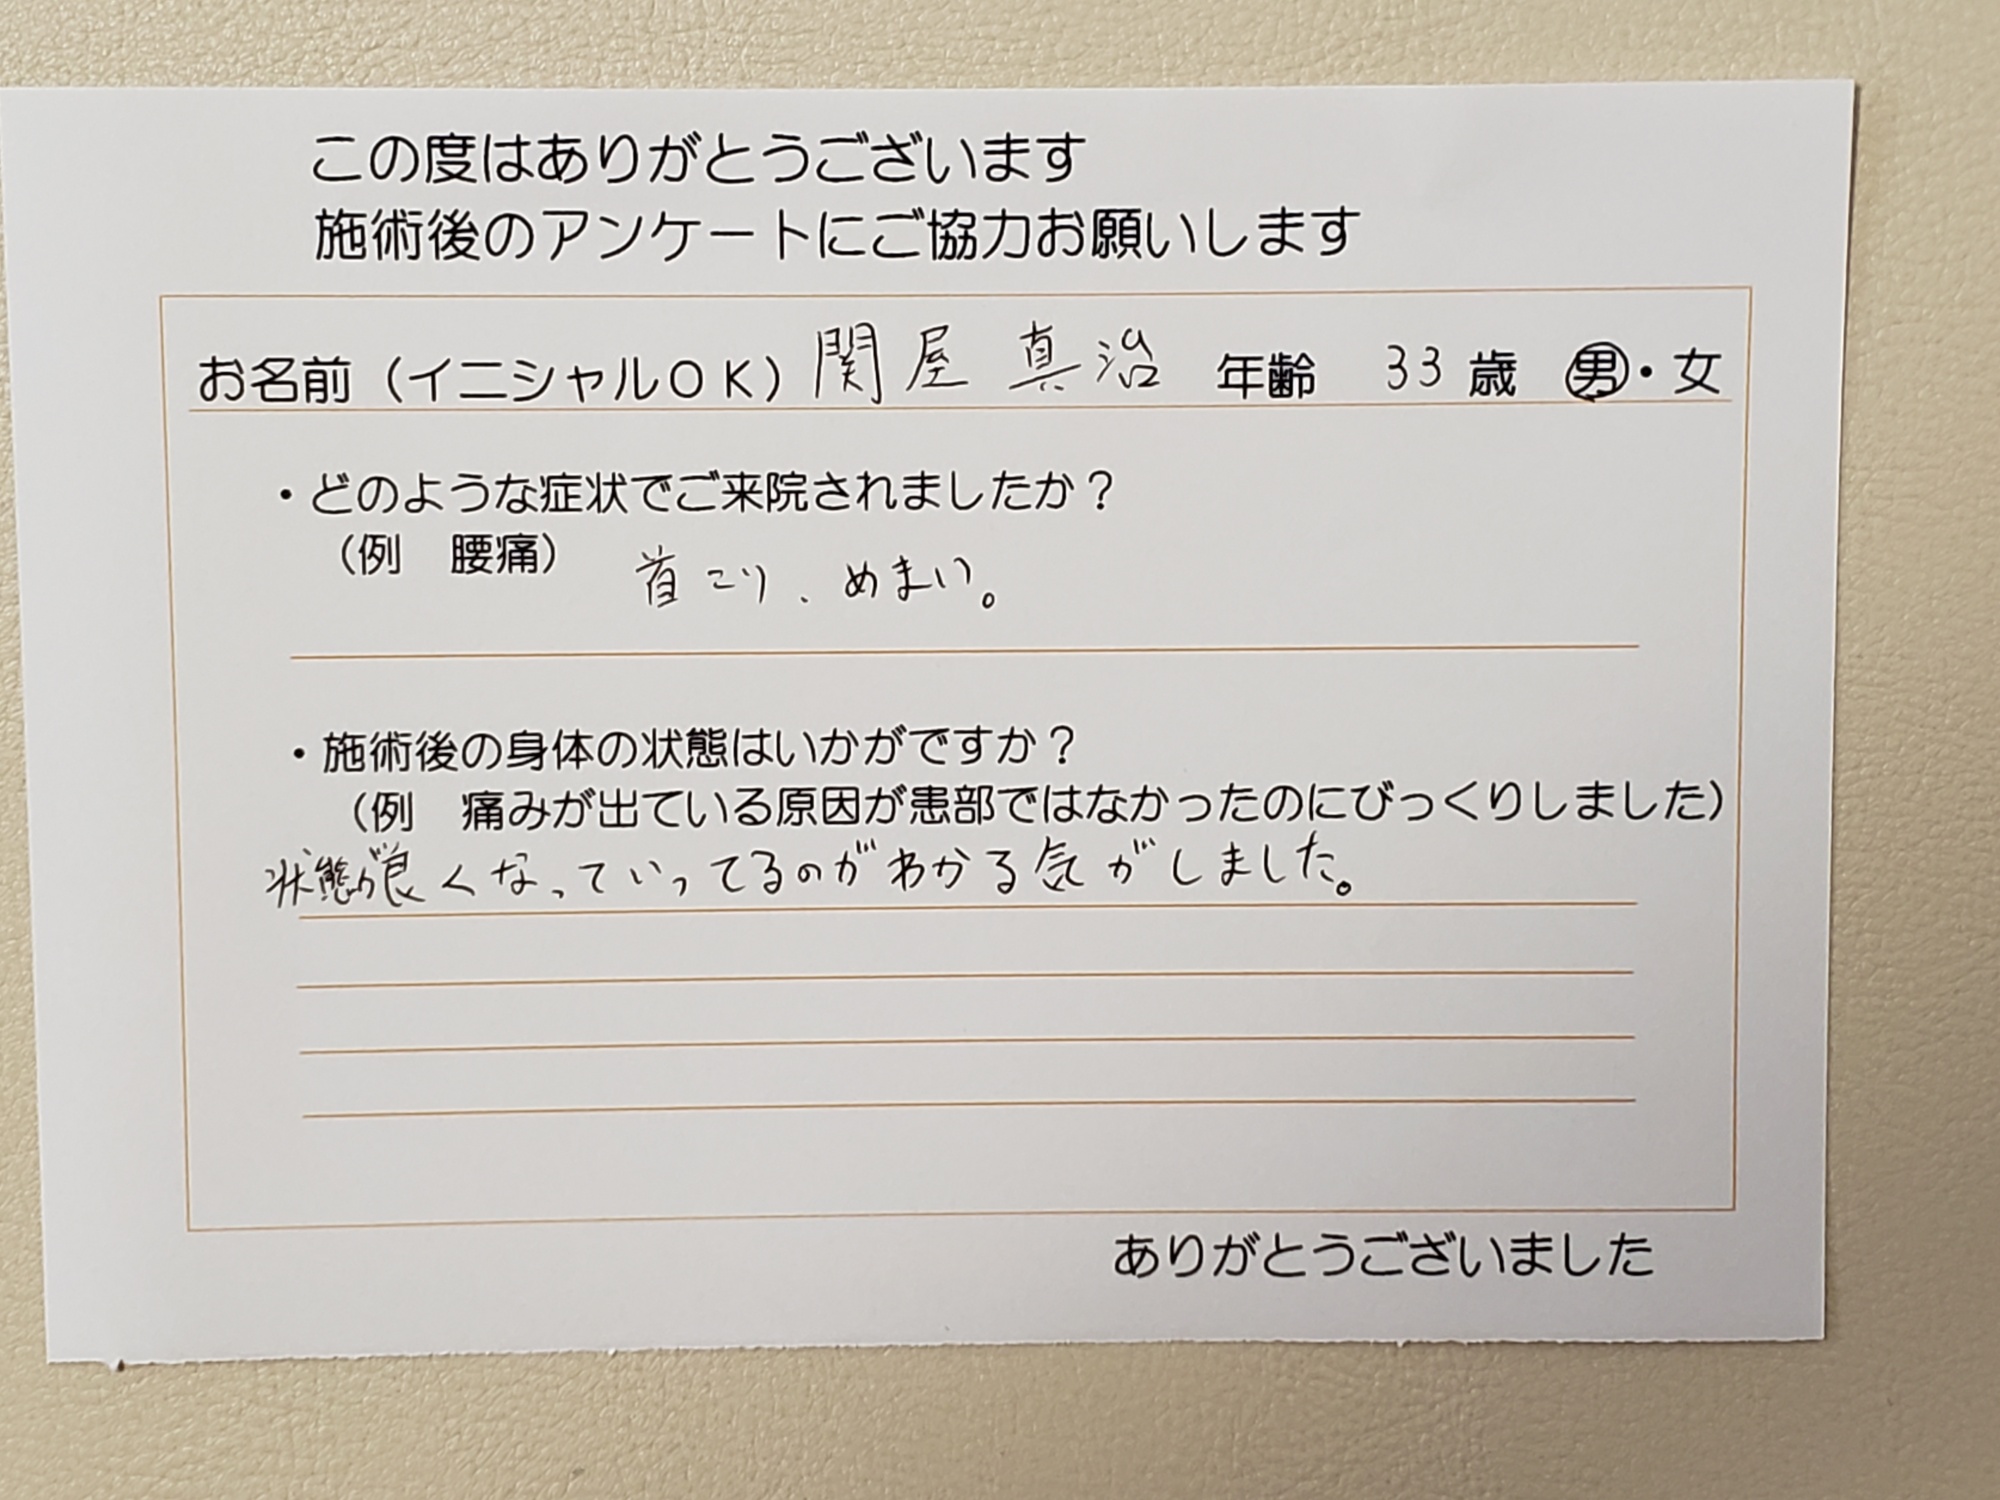 この度はありがとうございます
施術後のアンケートにご協力お願いします
お名前（イニシャルＯＫ）関屋 真治 年齢 33 歳 男・女
・どのような症状でご来院されましたか？
（例　腰痛） 首こり、めまい。
・施術後の身体の状態はいかがですか？
（例　痛みが出ている原因が患部ではなかったのにびっくりしました）
状態が良くなっていってるのがわかる気がしました。
ありがとうございました